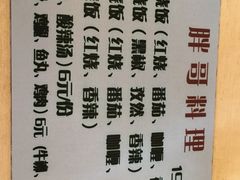 胖哥料理
饭（红烧、番茄、咖喱、
饭（黑椒、孜然、香辣）
饭（红烧、番茄、咖喱、
饭（红烧、香辣）
酸辣汤）6元/份
鱼丸、6元